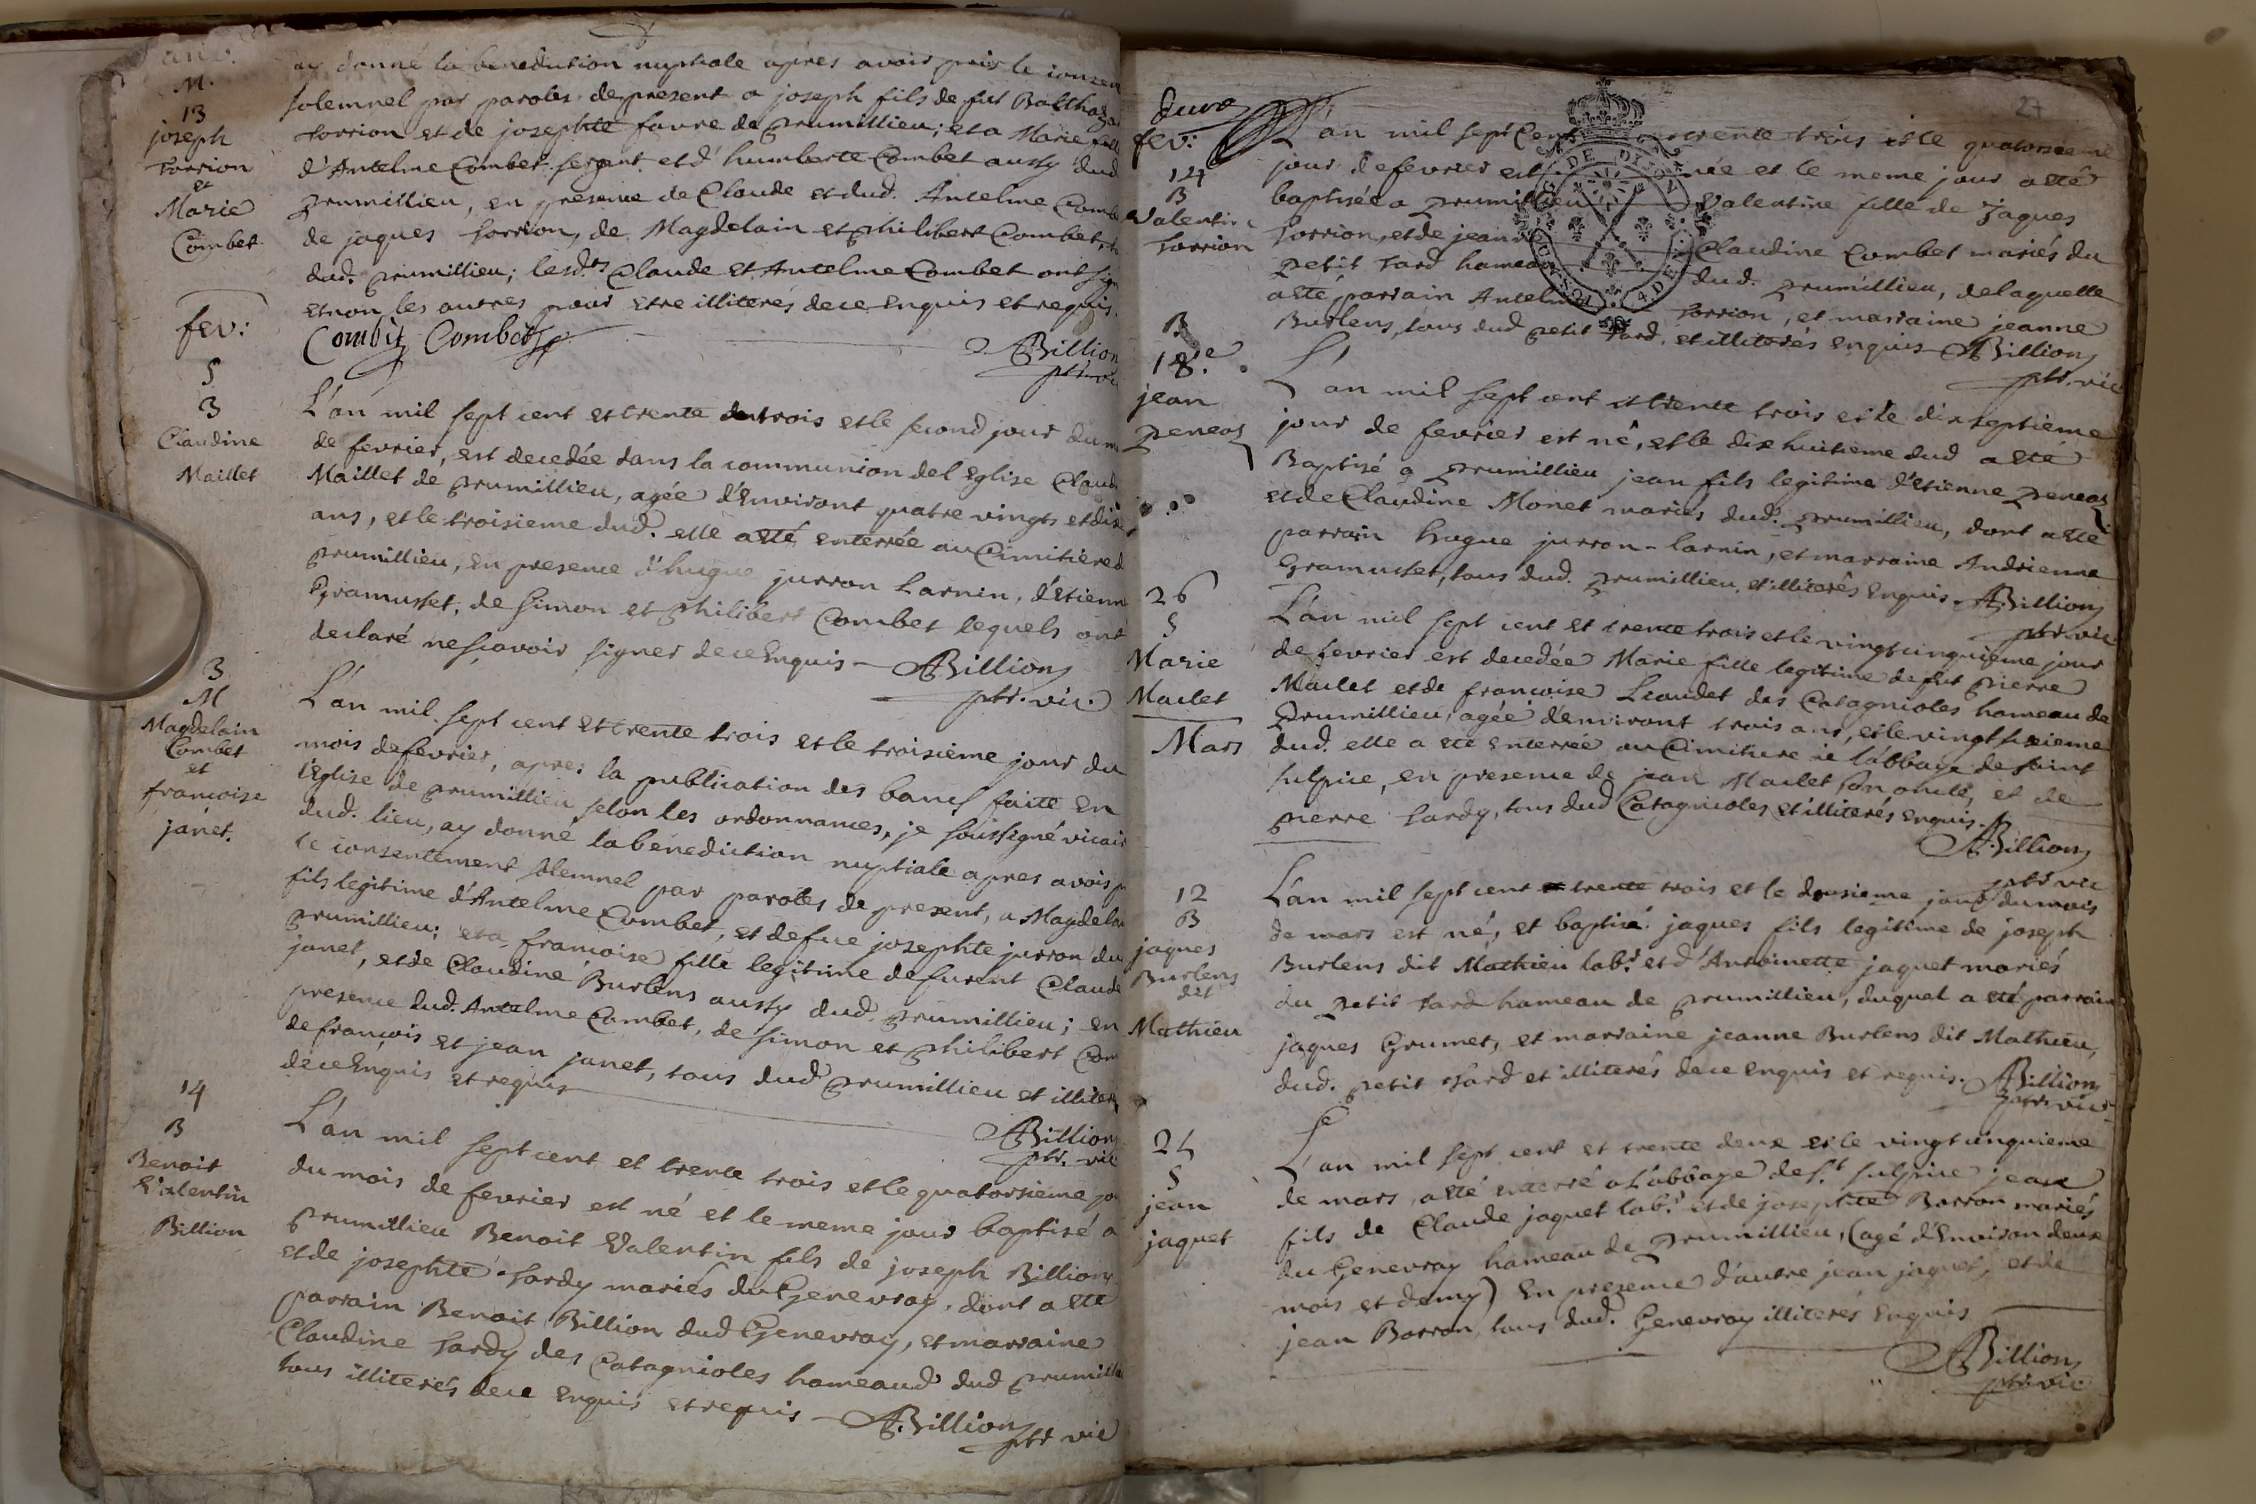 janv:
M.
13
joseph
torrion
et
Marie
Combet
ay donné la benediction nuptiale apres avoir pris le consen
solemnel par paroles de present a joseph fils de fut Balthaza
torrion et de josephte favre de prumillieu; et a Marie fill
d'Antelme Combet sergent et d'humberte Combet aussy dud
prumillieu, en presence de Claude et dud. Antelme Combe
de jaques torrion, de Magdelain et philibert Combet, t
dud. prumillieu; lesd.ts Claude et Antelme Combet ont sign
et non les autres pour etre illiterés de ce Enquis et requis.
Combet Combet
ABillion
ptr. vic
fev:
S
3
Claudine
Maillet
L'an mil sept cent et trente trois et le second jour du m
de fevrier, est decedée dans la communion de l'Eglise Claud
Maillet de prumillieu, agée d'Environt quatre vingts et dix
ans, et le troisieme dud. elle a eté enterrée au Cimitiere d
prumillieu, en presence d'hugue jurron larnin, d'Etienn
Gramusset, de simon et philibert Combet lequels ont
declaré ne sçavoir signer de ce Enquis ABillion
ptr. vic.
3
M
Magdelain
Combet
et
francoise
janet.
L'an mil sept cent et trente trois et le troisieme jour du
mois de fevrier, apres la publication des bancs faite En
l'Eglise de prumillieu selon les ordonnances, je soussigné vicair
dud. lieu, ay donné la benediction nuptiale apres avois p
le consentement solemnel par paroles de present, a Magdelai
fils legitime d'Antelme Combet, et defue josephte jurron du
prumillieu; et a francoise fille legitime defurent Claude
janet, et de Claudine Burlens aussy dud. prumillieu; en
presence dud. Antelme Combet, de simon et philibert Com
de francois et jean janet, tous dud. prumillieu et illiter
de ce Enquis et requis
ABillion
ptr. vic
14
B
Benoit
Valentin
Billion
L'an mil sept cent et trente trois et le quatorsieme jo
du mois de fevrier est né et le meme jour baptisé a
prumillieu Benoit Valentin fils de joseph Billion
et de josephte tardy mariés du Genevray, dont a eté
parrain Benoit Billion dud Genevray, et marraine
Claudine tardy des Catagnioles hameaud dud prumilli
tous illiterés de ce Enquis et requis ABillion
ptr vic
27
fev:
14
B
Valentin
torrion
L'an mil sept Cent trente trois et le quatorsieme
jour de fevrier est née et le meme jour a eté
baptisée a prumillieu Valentine fille de Jaques
torrion, et de jeanne Claudine Combet mariés du
petit tard hameau dud. prumillieu, de laquelle
a eté parrain Antelme torrion, et marraine jeanne
Burlens, tous dud petit tard. et illiterés enquis ABillion
ptr. vic
B
18.e
jean
peneaz
L'an mil sept cent et trente trois et le dix septieme
jour de fevrier est né, et le dix huitieme dud a eté
Baptisé a prumillieu jean fils legitime d'Etienne peneaz
et de Claudine Monet mariés dud. prumillieu, dont a eté
parrain hugue jurron-larnin, et marraine Andrienne
Gramusset, tous dud. prumillieu, et illiterés Enquis ABillion
ptr. vic
26
S
Marie
Maclet
L'an mil sept cent et trente trois et le vingt cinquieme jour
de fevrier est decedée Marie fille legitime defut pierre
Maclet et de francoise Leaudet des Catagnioles hameau de
prumillieu, agée d'environt trois ans, et le vingt sixieme
dud. elle a eté enterrée au Cimitiere de l'abbaye de saint
sulpice, en presence de jean Maclet son oncle, et de
pierre tardy, tous dud Catagnioles et illiterés Enquis.
ABillion
ptr vic
Mars
12
B
jaques
Burlens
dit
Mathieu
L'an mil sept cent trente trois et le dousieme jour du mois
de mars est né, et baptisé jaques fils legitime de joseph
Burlens dit Mathieu lab.r et d'Antoinette jaquet mariés
du petit tard hameau de prumillieu, duquel a eté parrain
jaques Grumet, et marraine jeanne Burlens dit Mathieu,
dud. petit tard et illiterés de ce Enquis et requis. ABillion
ptr vic
S
jean
jaquet
L'an mil sept cent et trente deux et le vingt cinquieme
de mars a eté enterré a l'abbaye de s.t sulpice jean
fils de Claude jaquet lab.r et de josephte Barron mariés
du Genevray hameau de prumillieu, (agé d'Environ deux
mois et demy) En presence d'autre jean jaquet, et de
jean Barron, tous dud. Genevray illiterés Enquis
ABillion
ptr vic